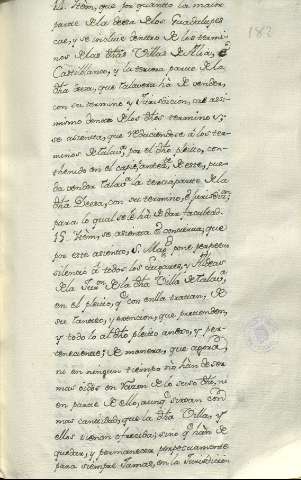 14. Ittem, que por quanto la maior
parte de la deesa de los Guadalupes
cae, y se incluie dentro de los termi-
nos de las dhas Villas de Alia, é
Castilblanco, y la tercera parte de la
dha deesa, que talavera hà de vender,
con su termino y jurisdicion, cae assi-
mismo dentro de los dhos terminos;
se assienta, que reduciendose à los ter-
minos de talaª, por el dho pleito, con-
thenido en el capit. antez. de este, pue-
da vender talavª la tercia parte de la
dha Deesa, con su termino, è jurisdicon
para lo qual se le hà de dar facultad.
15. Ittem, se assienta è concierta, que
por este assiento, S. Magd. pone perpetuo
silencio à todos los Lugares, y Aldeas
de la Juron de la dha Villa de talavª
en el pleito, q con ella tratan, de
su tanteo, y exencion, que pretenden,
y todo lo al dho pleito anexo, y per-
teneciente; de manera, que agora,
ni en ningun tiempo no hàn de ser
mas oidos en razon de lo suso dho, ni
en parte de ello, aunq sirvan con
mas cantidad, que la dha Villa, y
ellos tienen ofrecida; sino q hàn de
quedar, y permanecer perpetuamente
para siempre Jamas, en la Jurisdicion
182